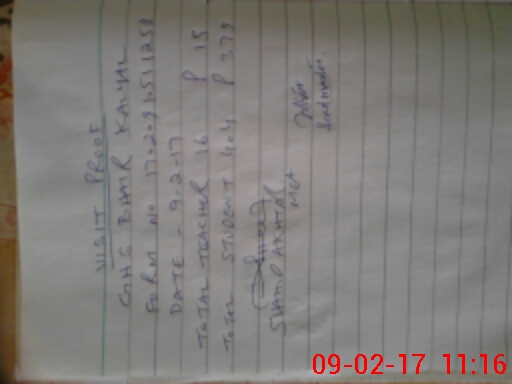 VISIT PROOF
GHS BHAIR KALYAL
FORM NO 17020910511258
DATE - 9-2-17
TOTAL TEACHER 16 P 15
TOTAL STUDENT 404 P 379
SHAHID AKHTAR
MEA
Headmaster.
09-02-17 11:16